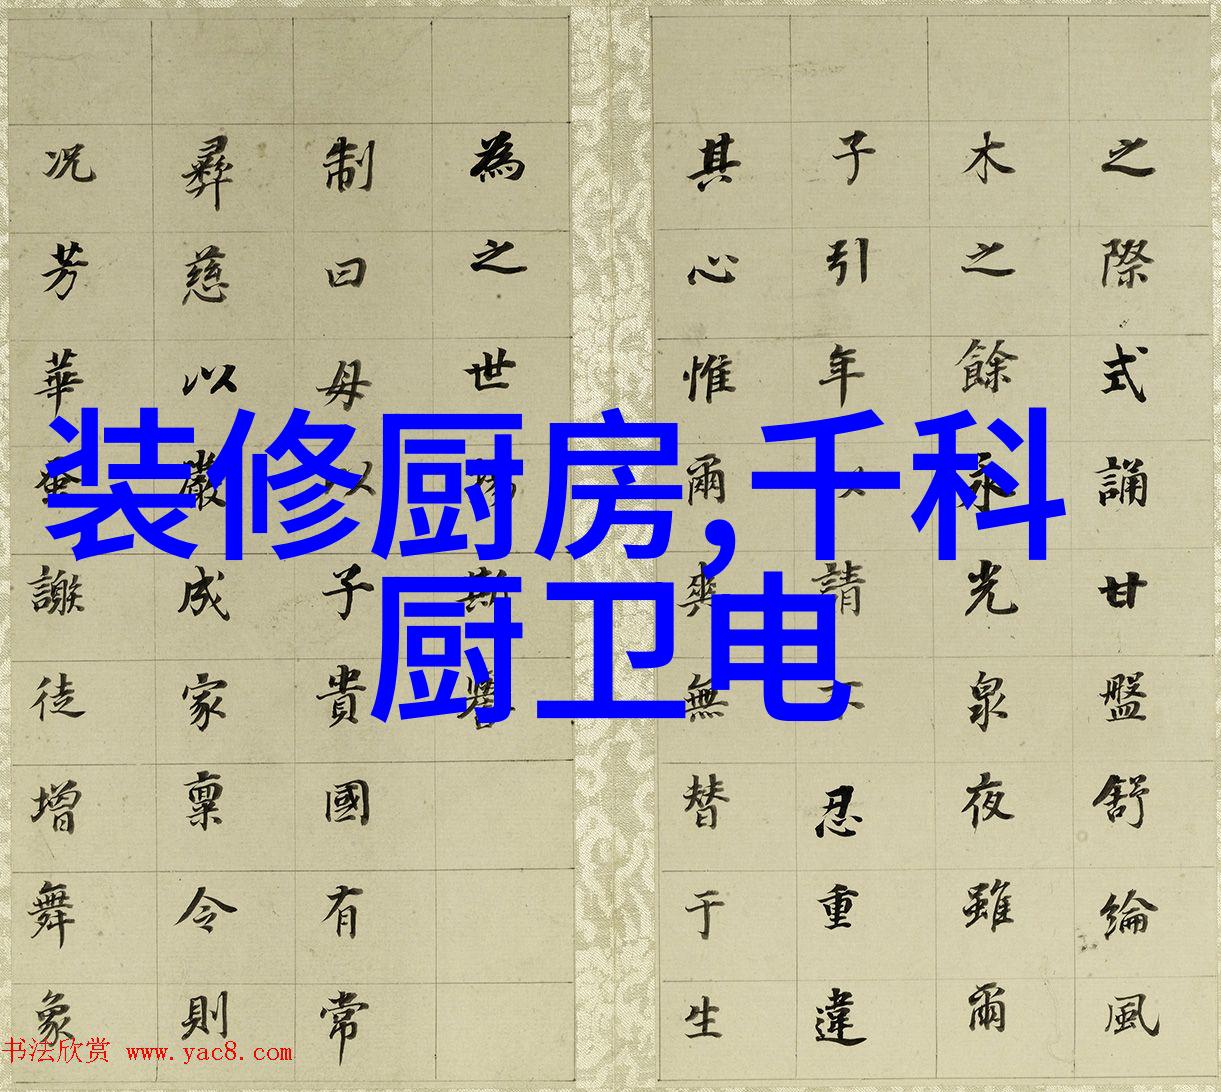 装修厨房,千科
厨卫电
之際式誦甘盤舒綸風
木之餘永光泉夜雖爾
子引年以請不忍重違
其心惟爾爽無替于生
為之世
制曰母以子貴國有常
彝慈以嚴成家稟令則
况芳華蚤謝徒增舞象
书法欣赏 www.yac8.com